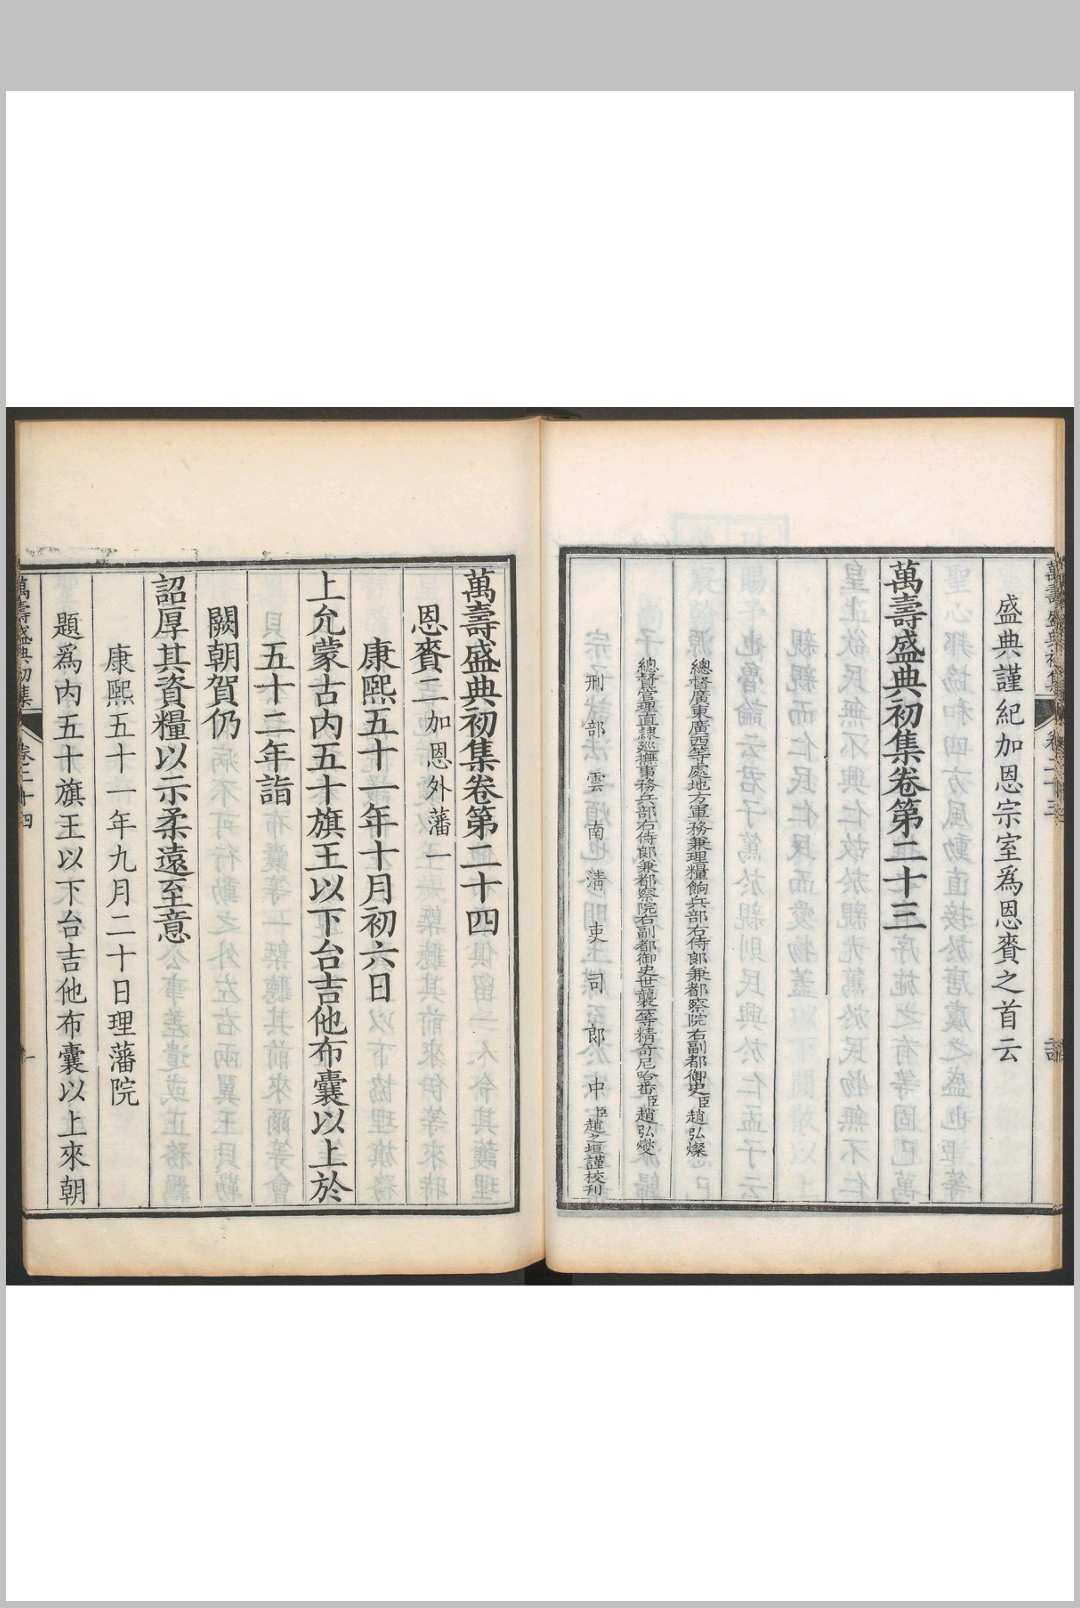 盛典謹紀加恩宗室爲恩賚之首云
萬壽盛典初集卷第二十三
總督廣東廣西等處地方軍務兼理糧餉兵部右侍郎兼都察院右副都御史臣趙弘燦
總督管理直隸巡撫事務兵部右侍郎兼都察院右副都御史世襲一等精奇尼哈番臣趙弘燮
刑部雲南淸吏司郎中臣趙之垣謹校刊
萬壽盛典初集卷第二十四
恩賚二加恩外藩一
康熙五十一年十月初六日
上允蒙古內五十旗王以下台吉他布囊以上於
五十二年詣
闕朝賀仍
詔厚其資糧以示柔遠至意
康熙五十一年九月二十日理藩院
題爲內五十旗王以下台吉他布囊以上來朝
萬壽盛典初集 卷二十四 一